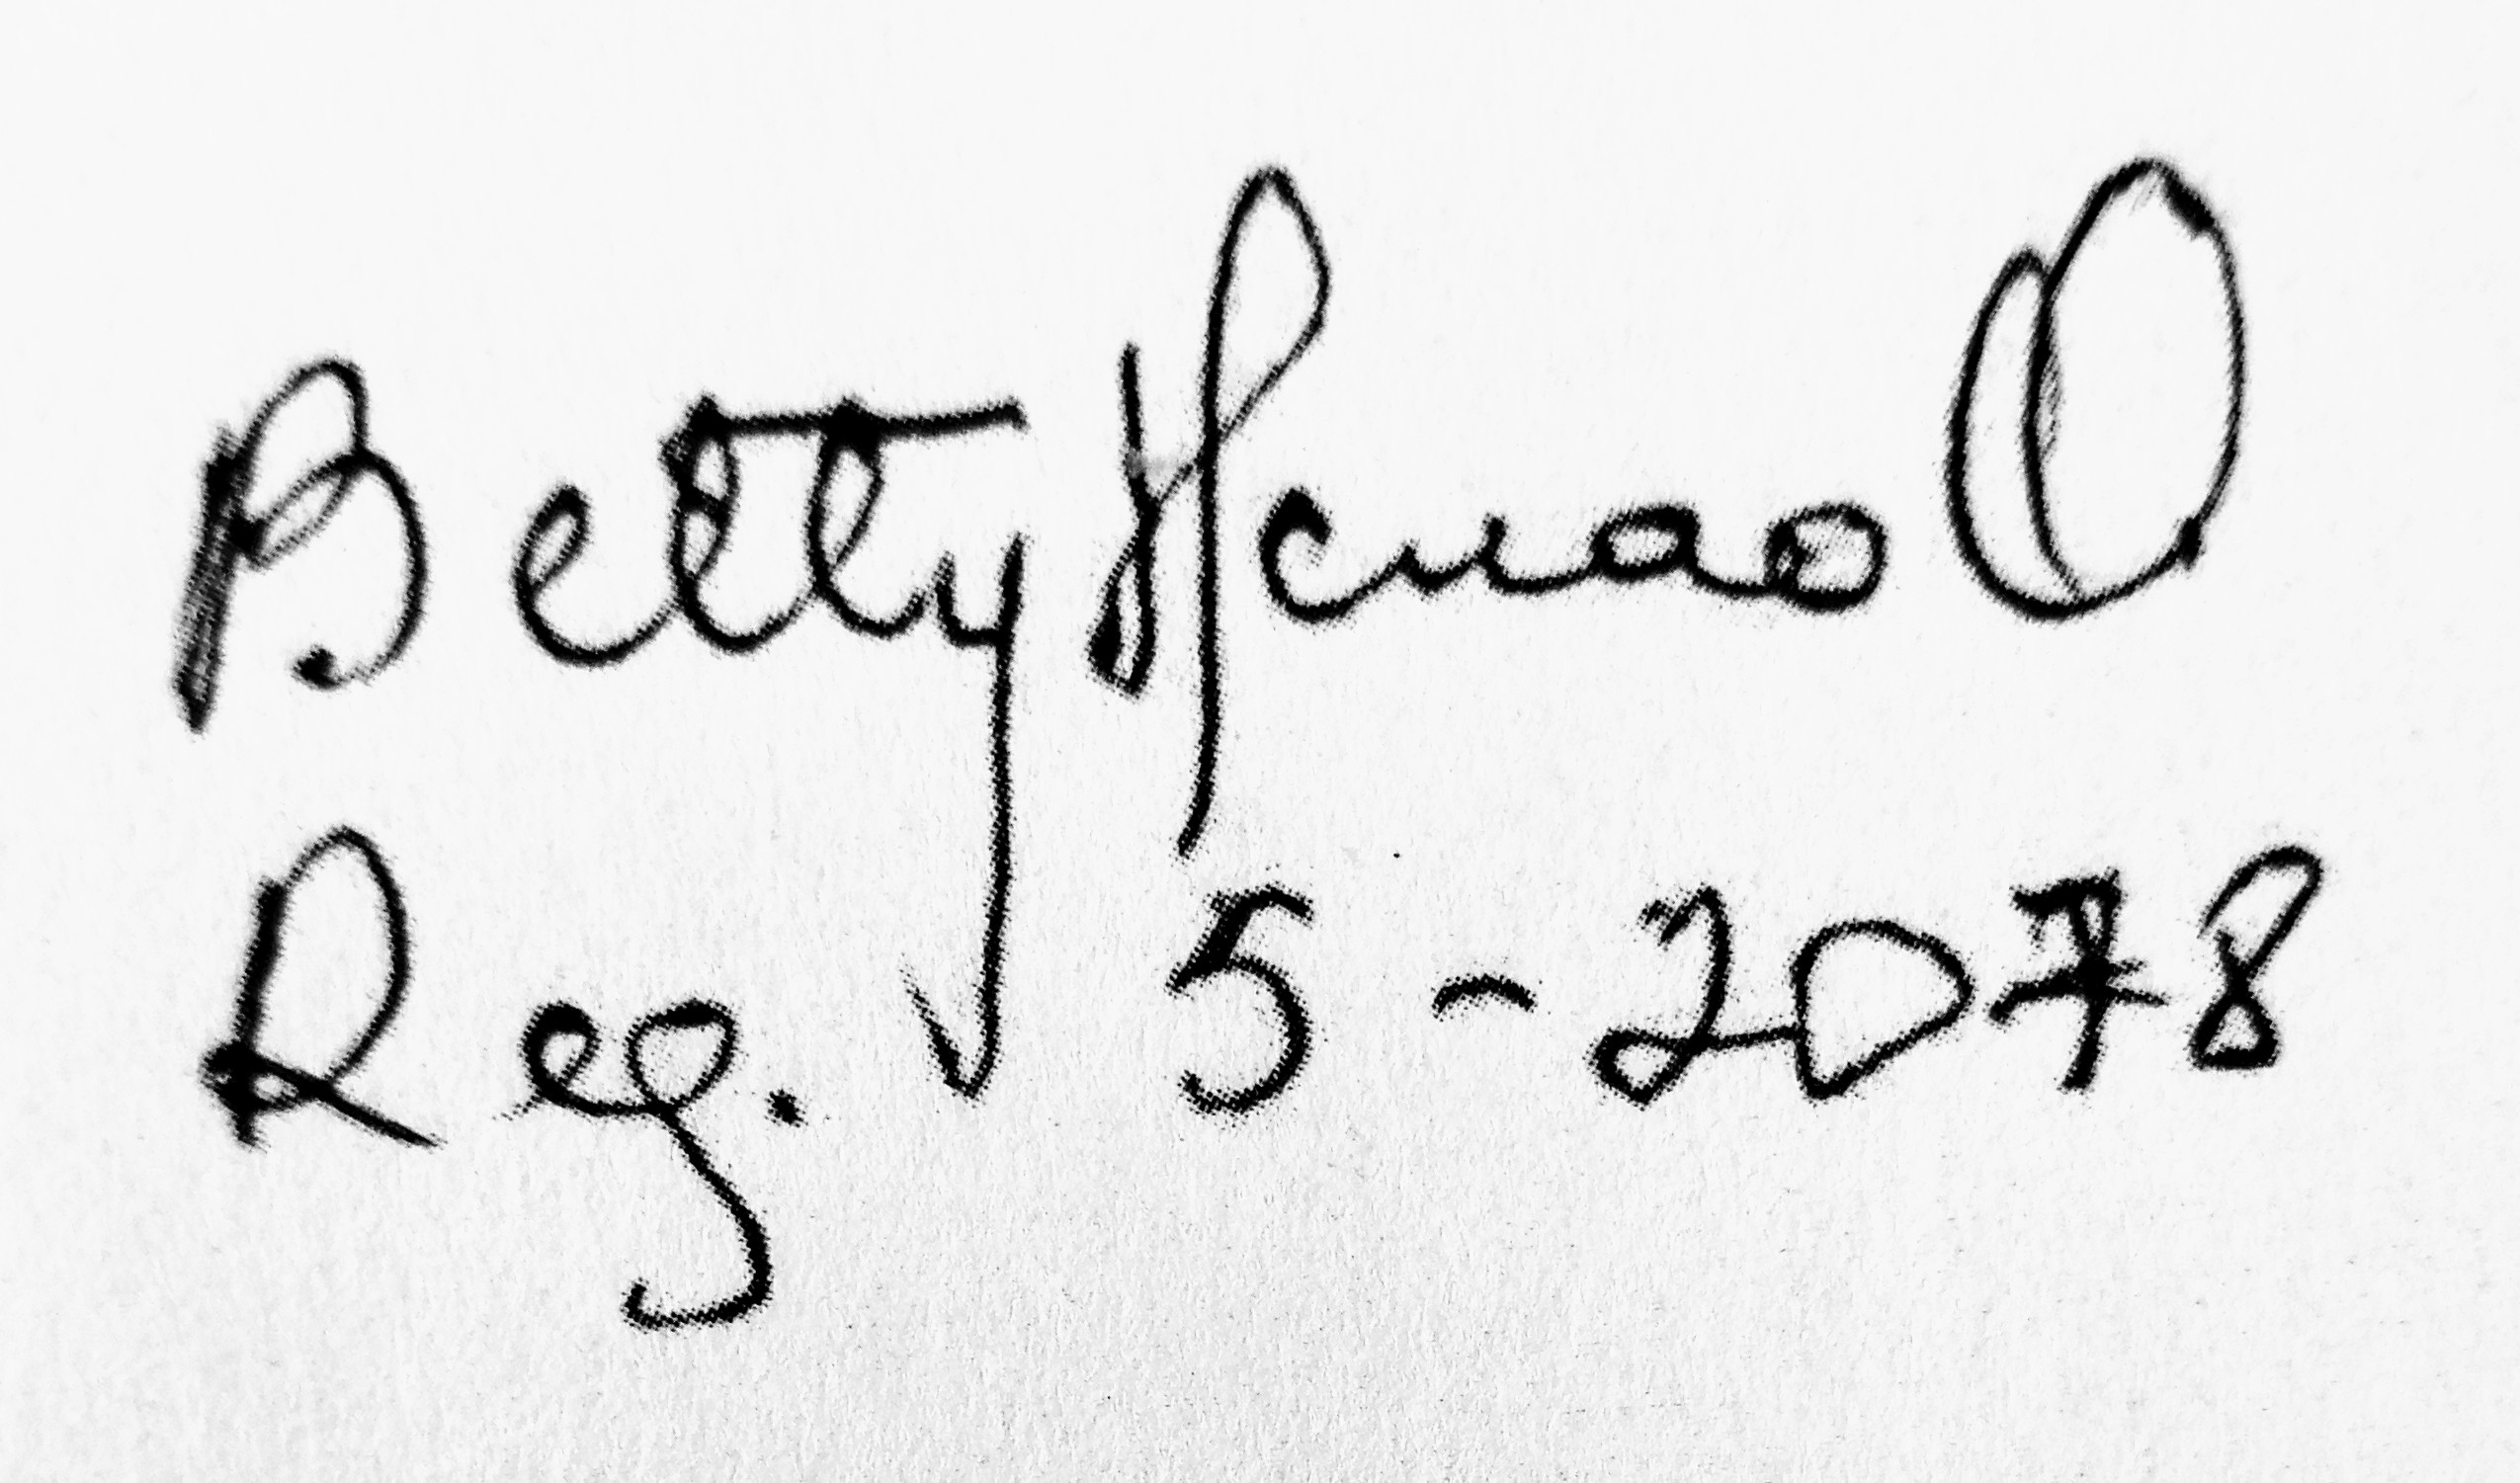 Betty Henao O
Reg. 5-2078